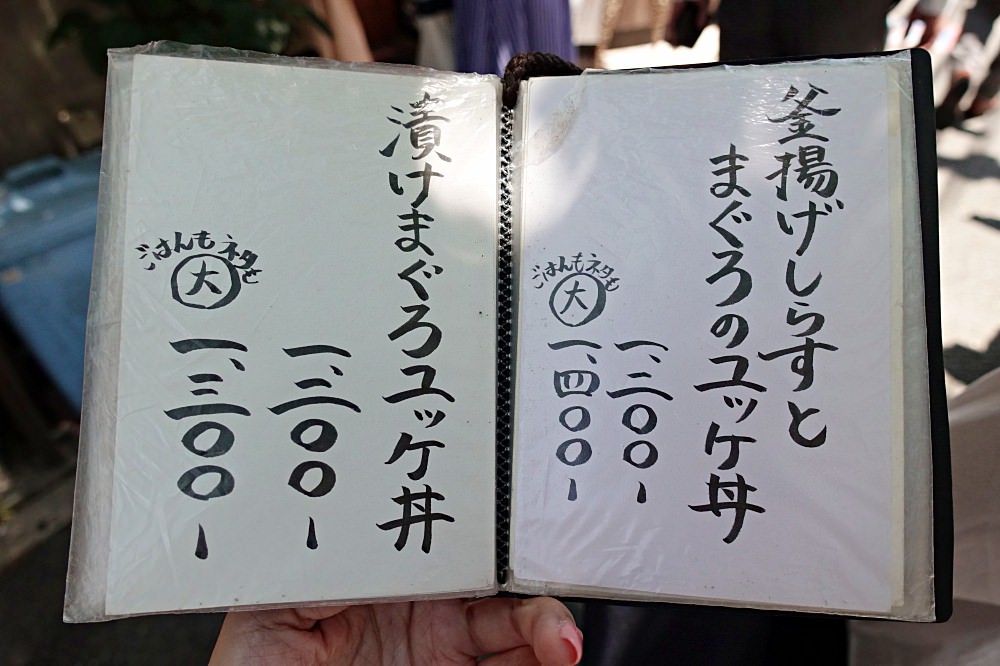 釜揚げしらすと
まぐろのユッケ丼
一、二〇〇ー
ごはんもネタも
大
一、四〇〇ー
漬けまぐろユッケ丼
一、二〇〇ー
ごはんもネタも
大
一、三〇〇ー